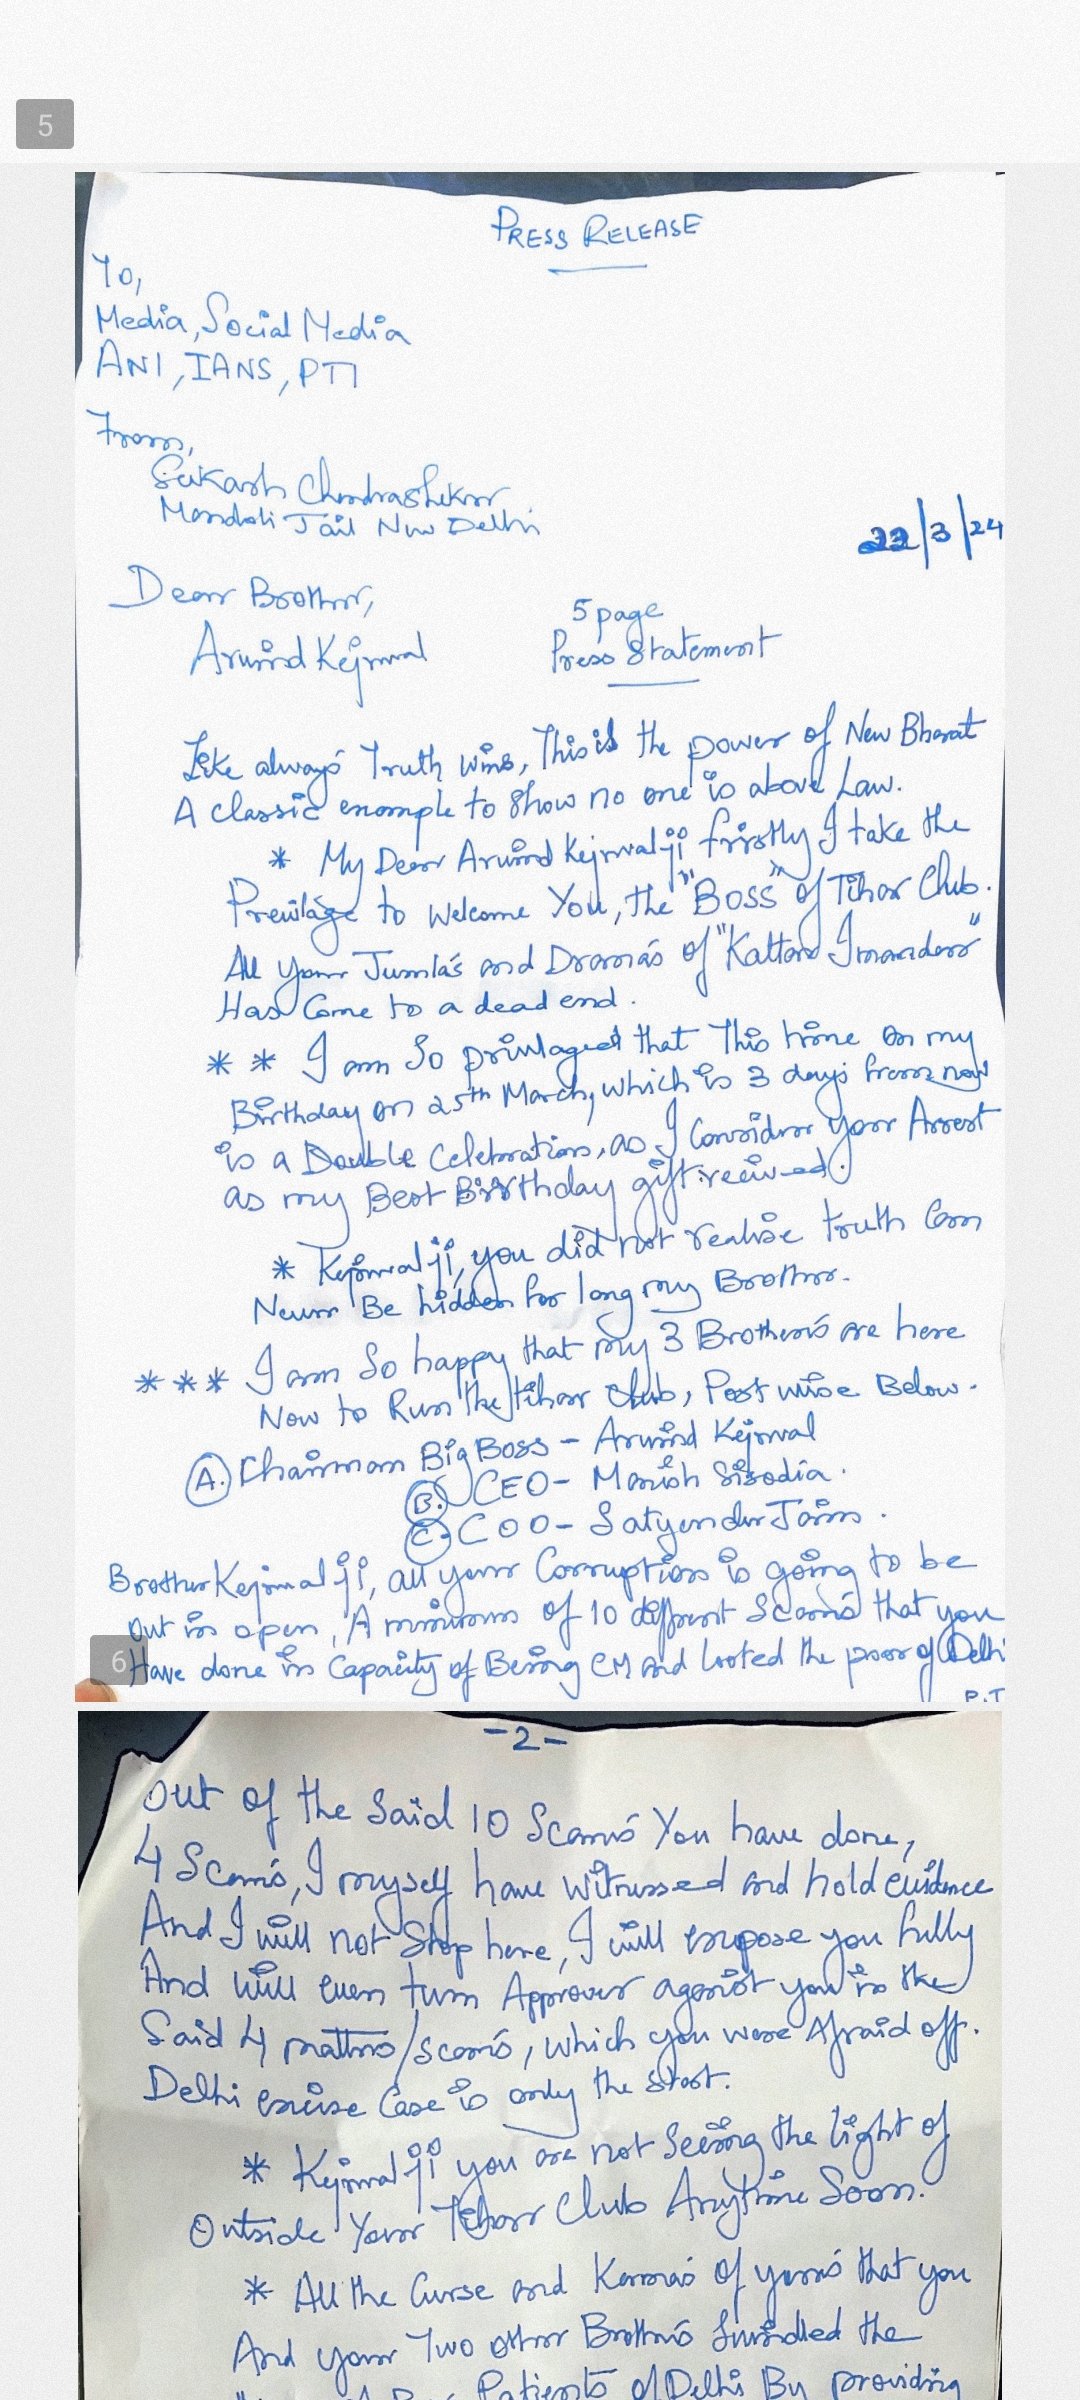 5
PRESS RELEASE
To,
Media, Social Media
ANI, IANS, PTI
From,
Sukash Chandrashekar
Mandoli Jail New Delhi
22/3/24
Dear Brother,
Arvind Kejrwal
5 page
Press Statement
Like always Truth wins, This is the power of New Bharat
A classic example to show no one is above Law.
* My Dear Arvind Kejrwal ji firstly I take the
Previlage to Welcome You, the "BOSS" of Tihar Club.
All your Jumla's and Drama's of "Kattar Imandaar"
Has Come to a dead end.
** I am So privlaged that This time on my
Birthday on 25th March, which is 3 days from now
is a Double Celebration, as I Consider your Arrest
as my Best Birthday gift received.
* Kejrwal ji, you did not realise truth Can
Never Be hidden for long my Brother.
*** I am So happy that my 3 Brother's are here
Now to Run the tihar club, Post wise Below.
A. Chairman Big Boss - Arvind Kejrwal
B. CEO - Manish Sisodia.
C. COO - Satyendar Jain.
Brother Kejrwal ji, all your Corruption is going to be
out in open, A minimum of 10 different Scams that you
6
Have done in Capacity of Being CM and looted the poor of Delhi
P.T
-2-
Out of the Said 10 Scam's You have done,
4 Scam's, I myself have witnessed and hold evidence
And I will not Stop here, I will expose you fully
And will even turn Approver against you in the
Said 4 matters/scam's, which you were Afraid off.
Delhi excise Case is only the start.
* Kejrwal ji you are not Seeing the light of
Outside Your Tihar Club Anytime Soon.
* All the Curse and Karma's of yours that you
And your Two other Brothers Swindled the
Patients of Delhi By providing